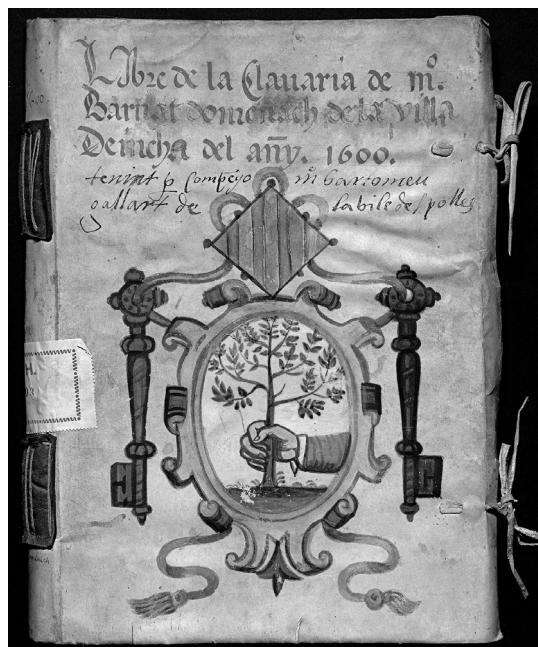 Llibre de la Clavaria de mº.
Barnat domenech de la villa
Deincha del añy. 1600.
tenint p compeyo mº bartomeu
oallart de la bile de
H.